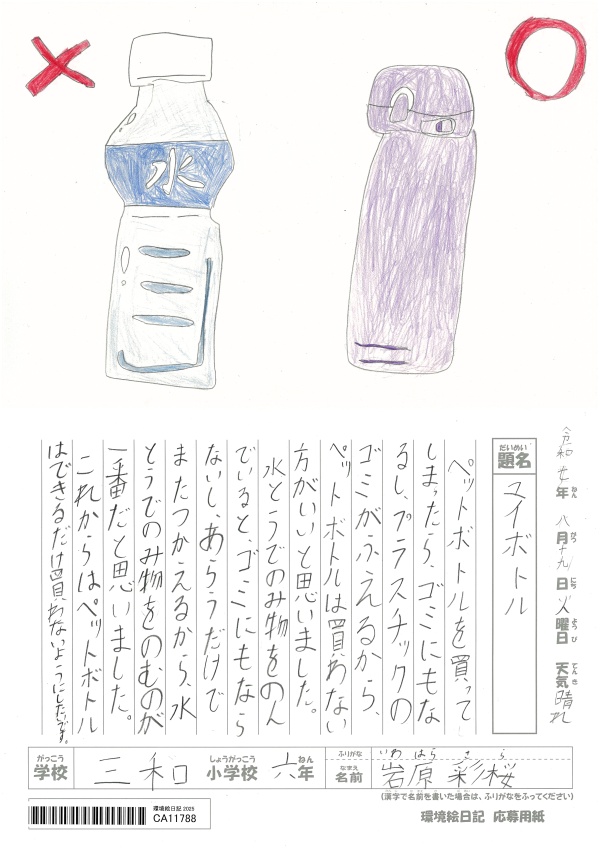 水
令和七年 八月十九日 火曜日 天気 晴れ
ねん がつ にち ようび てんき
だいめい
題名
マイボトル
ペットボトルを買って
しまったら、ゴミにもな
るし、プラスチックの
ゴミがふえるから、
ペットボトルは買わない
方がいいと思いました。
水とうでのみ物をのん
でいると、ゴミにもなら
ないし、あらうだけで
またつかえるから、水
とうでのみ物をのむのが
一番だと思いました。
これからはペットボトル
はできるだけ買わないようにしたいです。
がっこう しょうがっこう ねん
学校 三和小学校 六年
ふりがな いわ はら さ ら
なまえ
名前 岩原 彩桜
(漢字で名前を書いた場合は、ふりがなをふってください)
環境絵日記 2025
CA11788
環境絵日記 応募用紙